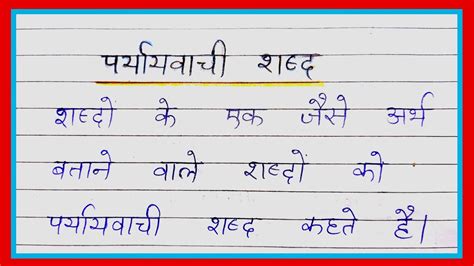 पर्यायवाची शब्द
शब्दों के एक जैसे अर्थ
बताने वाले शब्दों को
पर्यायवाची शब्द कहते है।